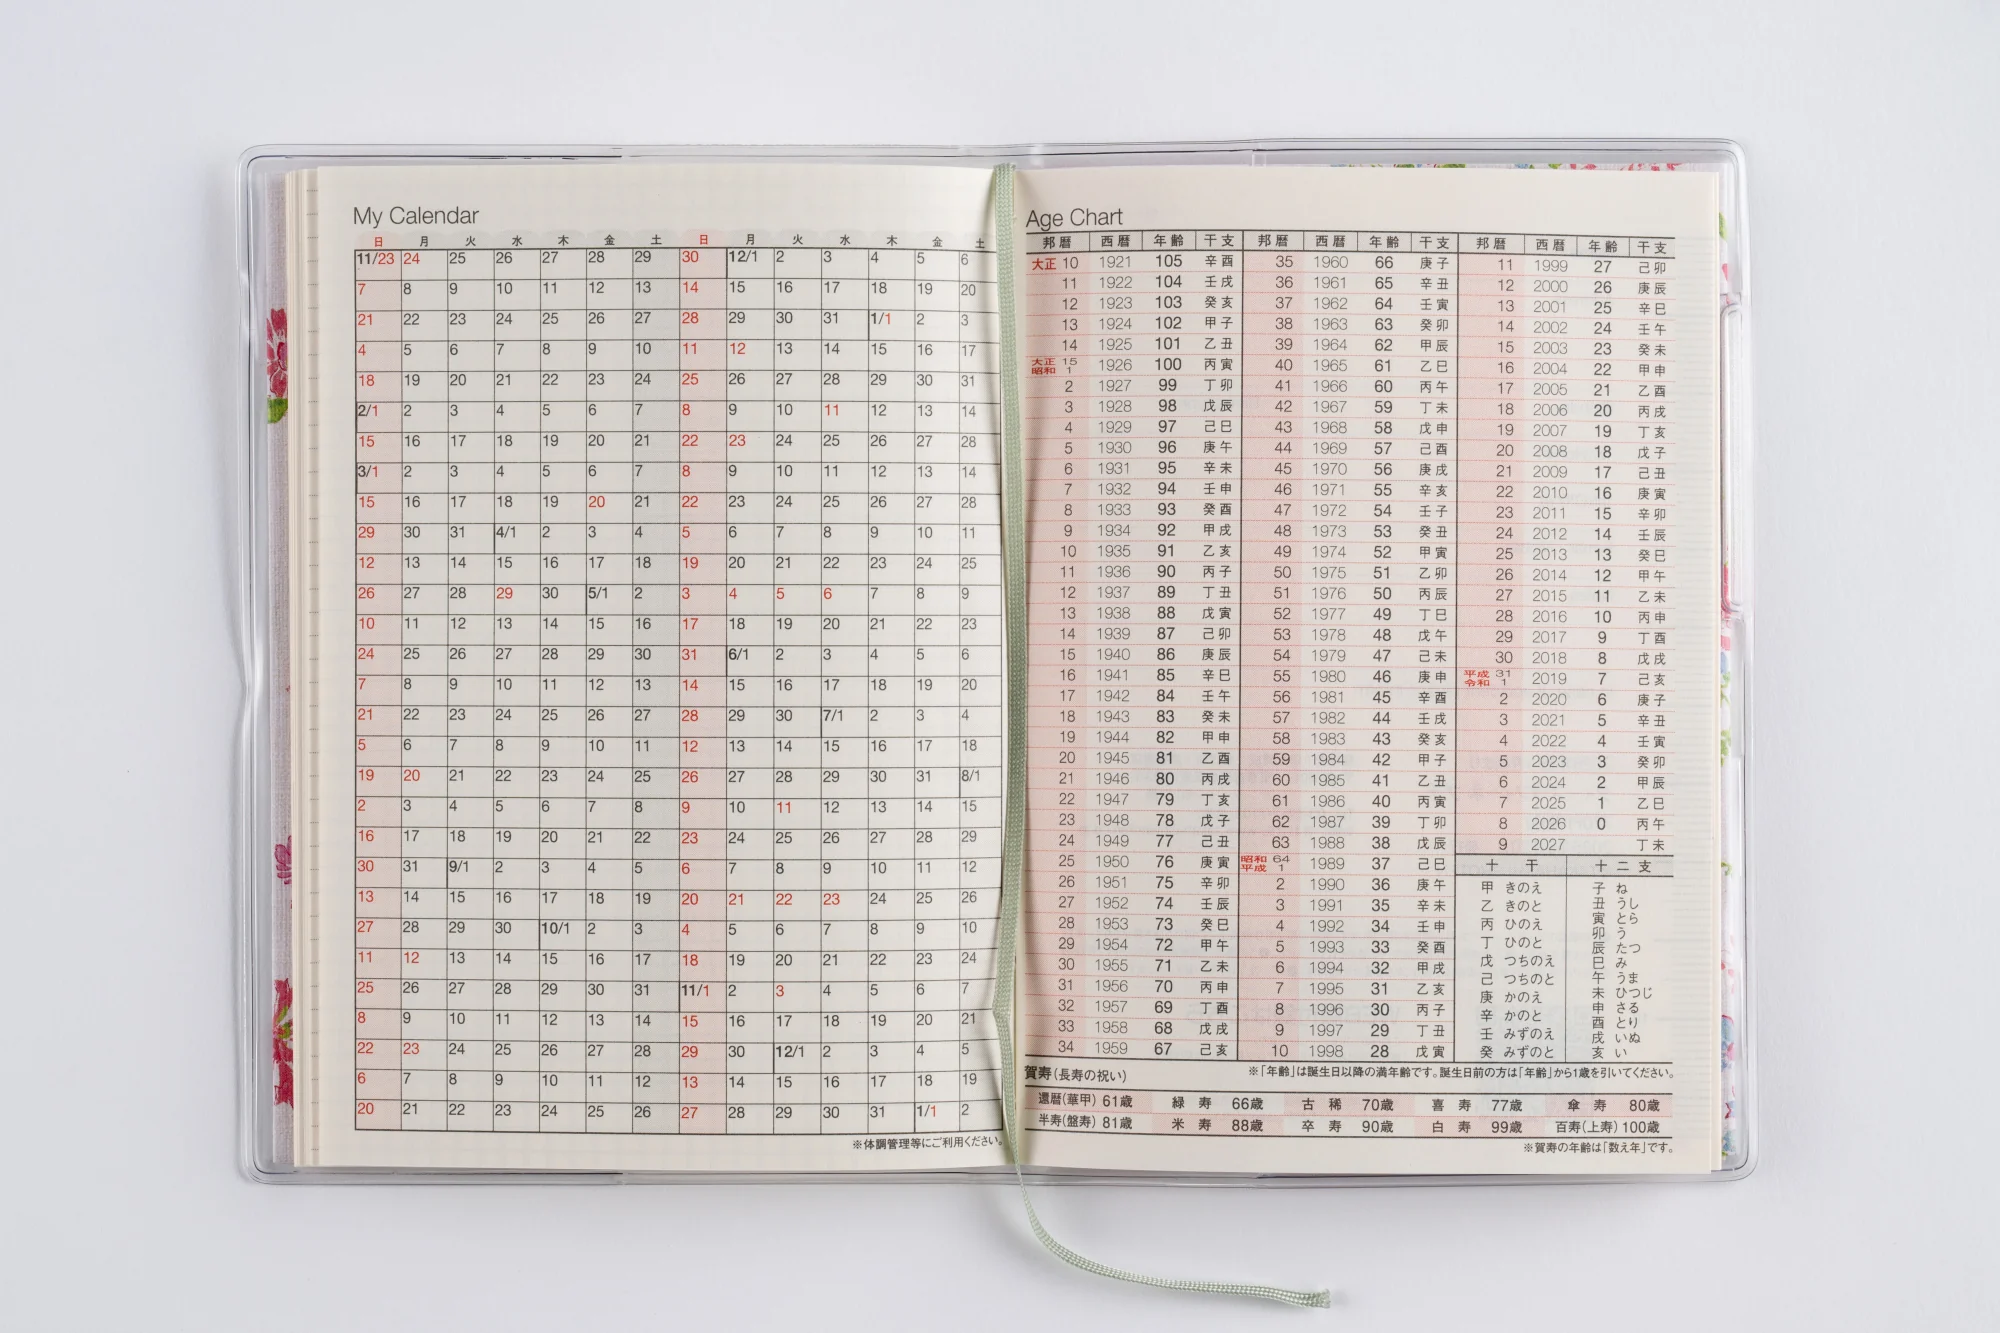 My Calendar
日 月 火 水 木 金 土 日 月 火 水 木 金 土
11/23 24 25 26 27 28 29 30 12/1 2 3 4 5 6
7 8 9 10 11 12 13 14 15 16 17 18 19 20
21 22 23 24 25 26 27 28 29 30 31 1/1 2 3
4 5 6 7 8 9 10 11 12 13 14 15 16 17
18 19 20 21 22 23 24 25 26 27 28 29 30 31
2/1 2 3 4 5 6 7 8 9 10 11 12 13 14
15 16 17 18 19 20 21 22 23 24 25 26 27 28
3/1 2 3 4 5 6 7 8 9 10 11 12 13 14
15 16 17 18 19 20 21 22 23 24 25 26 27 28
29 30 31 4/1 2 3 4 5 6 7 8 9 10 11
12 13 14 15 16 17 18 19 20 21 22 23 24 25
26 27 28 29 30 5/1 2 3 4 5 6 7 8 9
10 11 12 13 14 15 16 17 18 19 20 21 22 23
24 25 26 27 28 29 30 31 6/1 2 3 4 5 6
7 8 9 10 11 12 13 14 15 16 17 18 19 20
21 22 23 24 25 26 27 28 29 30 7/1 2 3 4
5 6 7 8 9 10 11 12 13 14 15 16 17 18
19 20 21 22 23 24 25 26 27 28 29 30 31 8/1
2 3 4 5 6 7 8 9 10 11 12 13 14 15
16 17 18 19 20 21 22 23 24 25 26 27 28 29
30 31 9/1 2 3 4 5 6 7 8 9 10 11 12
13 14 15 16 17 18 19 20 21 22 23 24 25 26
27 28 29 30 10/1 2 3 4 5 6 7 8 9 10
11 12 13 14 15 16 17 18 19 20 21 22 23 24
25 26 27 28 29 30 31 11/1 2 3 4 5 6 7
8 9 10 11 12 13 14 15 16 17 18 19 20 21
22 23 24 25 26 27 28 29 30 12/1 2 3 4 5
6 7 8 9 10 11 12 13 14 15 16 17 18 19
20 21 22 23 24 25 26 27 28 29 30 31 1/1 2
※体調管理等にご利用ください。
Age Chart
邦暦 西暦 年齢 干支 邦暦 西暦 年齢 干支 邦暦 西暦 年齢 干支
大正 10 1921 105 辛酉 35 1960 66 庚子 11 1999 27 己卯
11 1922 104 壬戌 36 1961 65 辛丑 12 2000 26 庚辰
12 1923 103 癸亥 37 1962 64 壬寅 13 2001 25 辛巳
13 1924 102 甲子 38 1963 63 癸卯 14 2002 24 壬午
14 1925 101 乙丑 39 1964 62 甲辰 15 2003 23 癸未
大正 15 昭和 1 1926 100 丙寅 40 1965 61 乙巳 16 2004 22 甲申
2 1927 99 丁卯 41 1966 60 丙午 17 2005 21 乙酉
3 1928 98 戊辰 42 1967 59 丁未 18 2006 20 丙戌
4 1929 97 己巳 43 1968 58 戊申 19 2007 19 丁亥
5 1930 96 庚午 44 1969 57 己酉 20 2008 18 戊子
6 1931 95 辛未 45 1970 56 庚戌 21 2009 17 己丑
7 1932 94 壬申 46 1971 55 辛亥 22 2010 16 庚寅
8 1933 93 癸酉 47 1972 54 壬子 23 2011 15 辛卯
9 1934 92 甲戌 48 1973 53 癸丑 24 2012 14 壬辰
10 1935 91 乙亥 49 1974 52 甲寅 25 2013 13 癸巳
11 1936 90 丙子 50 1975 51 乙卯 26 2014 12 甲午
12 1937 89 丁丑 51 1976 50 丙辰 27 2015 11 乙未
13 1938 88 戊寅 52 1977 49 丁巳 28 2016 10 丙申
14 1939 87 己卯 53 1978 48 戊午 29 2017 9 丁酉
15 1940 86 庚辰 54 1979 47 己未 30 2018 8 戊戌
16 1941 85 辛巳 55 1980 46 庚申 平成 31 令和 1 2019 7 己亥
17 1942 84 壬午 56 1981 45 辛酉 2 2020 6 庚子
18 1943 83 癸未 57 1982 44 壬戌 3 2021 5 辛丑
19 1944 82 甲申 58 1983 43 癸亥 4 2022 4 壬寅
20 1945 81 乙酉 59 1984 42 甲子 5 2023 3 癸卯
21 1946 80 丙戌 60 1985 41 乙丑 6 2024 2 甲辰
22 1947 79 丁亥 61 1986 40 丙寅 7 2025 1 乙巳
23 1948 78 戊子 62 1987 39 丁卯 8 2026 0 丙午
24 1949 77 己丑 63 1988 38 戊辰 9 2027 丁未
25 1950 76 庚寅 昭和 64 平成 1 1989 37 己巳
26 1951 75 辛卯 2 1990 36 庚午
27 1952 74 壬辰 3 1991 35 辛未
28 1953 73 癸巳 4 1992 34 壬申
29 1954 72 甲午 5 1993 33 癸酉
30 1955 71 乙未 6 1994 32 甲戌
31 1956 70 丙申 7 1995 31 乙亥
32 1957 69 丁酉 8 1996 30 丙子
33 1958 68 戊戌 9 1997 29 丁丑
34 1959 67 己亥 10 1998 28 戊寅
十干
甲 きのえ
乙 きのと
丙 ひのえ
丁 ひのと
戊 つちのえ
己 つちのと
庚 かのえ
辛 かのと
壬 みずのえ
癸 みずのと
十二支
子 ね
丑 うし
寅 とら
卯 う
辰 たつ
巳 み
午 うま
未 ひつじ
申 さる
酉 とり
戌 いぬ
亥 い
※「年齢」は誕生日以降の満年齢です。誕生日前の方は「年齢」から1歳を引いてください。
賀寿(長寿の祝い)
還暦(華甲) 61歳 緑寿 66歳 古稀 70歳 喜寿 77歳 傘寿 80歳
半寿(盤寿) 81歳 米寿 88歳 卒寿 90歳 白寿 99歳 百寿(上寿) 100歳
※賀寿の年齢は「数え年」です。